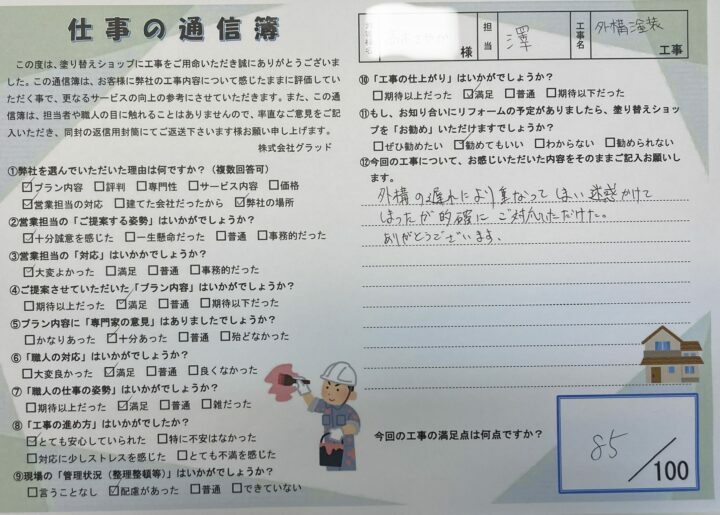 仕事の通信簿
この度は、塗り替えショップに工事をご用命いただき誠にありがとうございま
した。この通信簿は、お客様に弊社の工事内容について感じたままに評価してい
ただく事で、更なるサービスの向上の参考にさせていただきます。また、この通
信簿は、担当者や職人の目に触れることはありませんので、率直なご意見をご記
入いただき、同封の返信用封筒にてご返送下さいます様お願い申し上げます。
株式会社グラッド
①弊社を選んでいただいた理由は何ですか?（複数回答可）
☑プラン内容 □評判 □専門性 □サービス内容 □価格
☑営業担当の対応 □建てた会社だったから ☑弊社の場所
②営業担当の「ご提案する姿勢」はいかがでしょうか?
☑十分誠意を感じた □一生懸命だった □普通 □事務的だった
③営業担当の「対応」はいかかでしょうか?
☑大変よかった □満足 □普通 □事務的だった
④ご提案させていただいた「プラン内容」はいかがでしょうか?
□期待以上だった ☑満足 □普通 □期待以下だった
⑤プラン内容に「専門家の意見」はありましたでしょうか?
□かなりあった ☑十分あった □普通 □殆どなかった
⑥「職人の対応」はいかがでしょうか?
□大変良かった ☑満足 □普通 □良くなかった
⑦「職人の仕事の姿勢」はいかがでしょうか?
□期待以上だった ☑満足 □普通 □雑だった
⑧「工事の進め方」はいかがでしたか?
☑とても安心していられた □特に不安はなかった
□対応に少しストレスを感じた □とても不満を感じた
⑨現場の「管理状況（整理整頓等）」はいかがでしょうか?
□言うことなし ☑配慮があった □普通 □できていない
様 担当 澤 工事名 外構塗装 工事
⑩「工事の仕上がり」はいかがでしょうか?
□期待以上だった ☑満足 □普通 □期待以下だった
⑪もし、お知り合いにリフォームの予定がありましたら、塗り替えショッ
プを「お勧め」いただけますでしょうか?
□ぜひ勧めたい ☑勧めてもいい □わからない □勧められない
⑫今回の工事について、お感じいただいた内容をそのままご記入お願いし
ます。
外構の遅れにより重なってしまい迷惑かけて
しまったが的確にご対応いただけた。
ありがとうございます、
今回の工事の満足点は何点ですか?
85/100